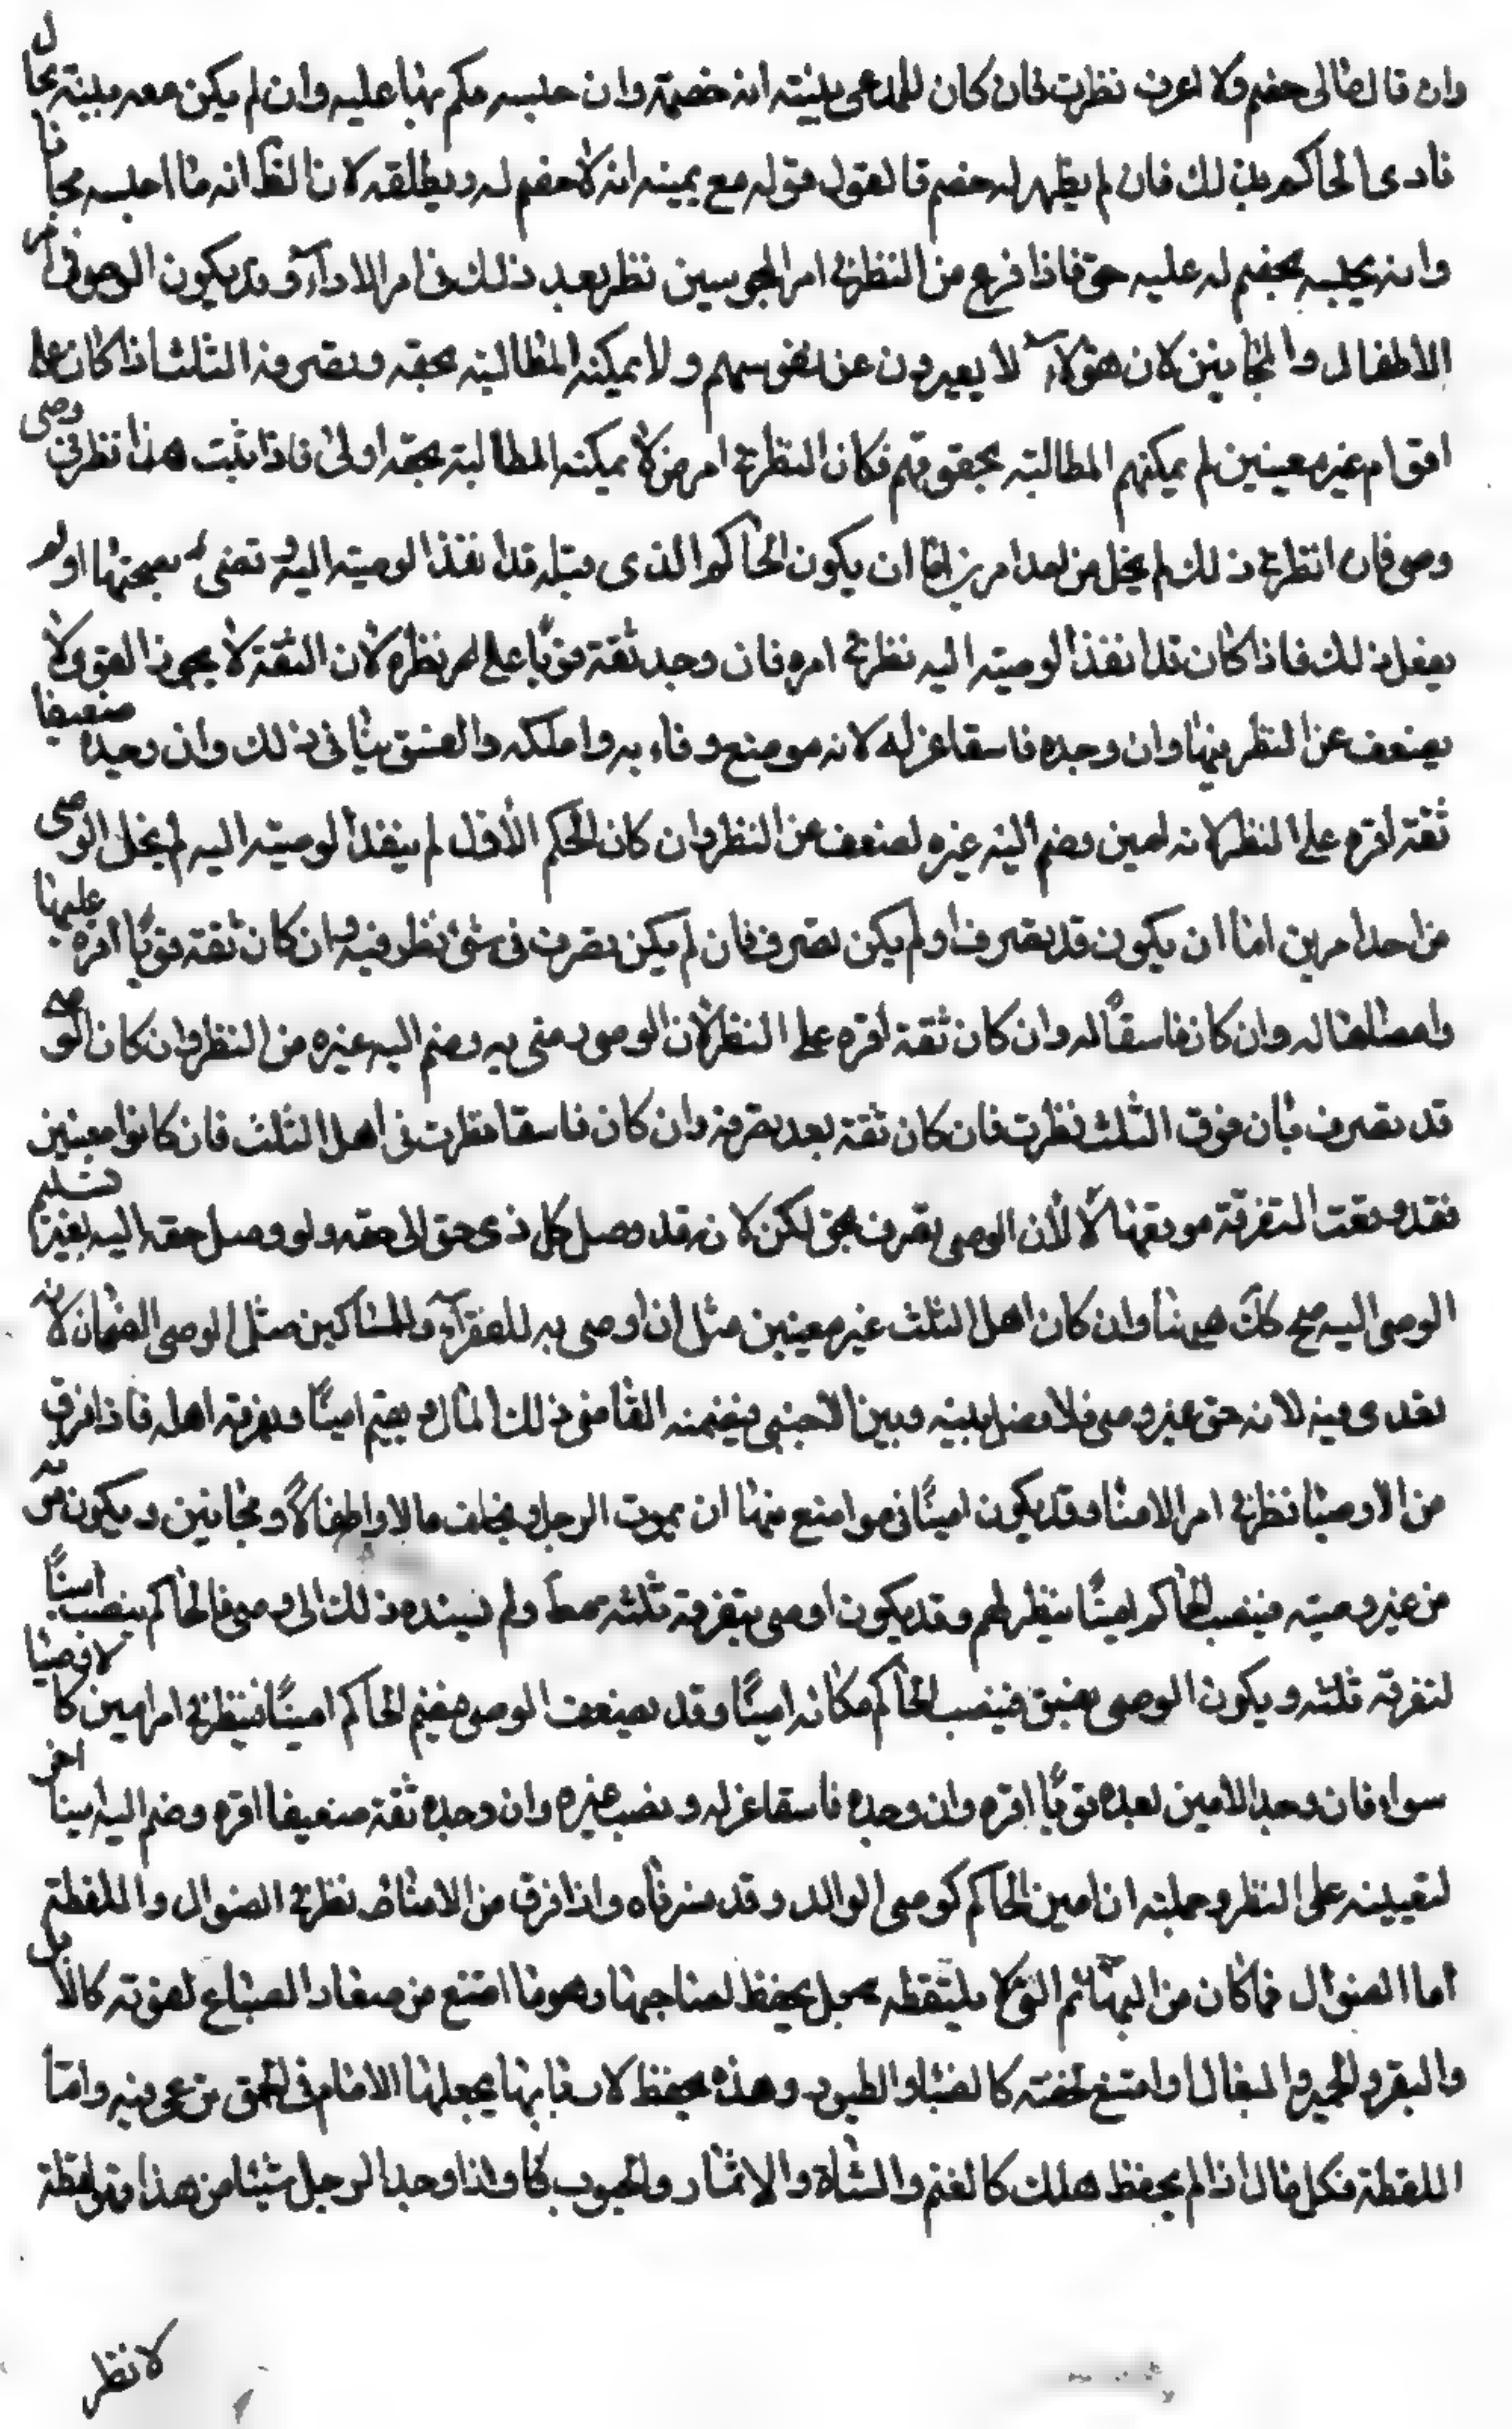 وان قال مالى خصم ولا اعرف نظرت فان كان للمدعى بينة انه خصمه وان حبسه حكم بها عليه وان لم يكن معه بينة بحال
نادى الحاكم بذلك فان لم يظهر له خصم فالقول قوله مع يمينه انه لا خصم له ويطلقه لان الظ انه ما احبسه مجانا
وانه يحبسه بخصم له عليه حق فاذا فرغ من النظر فى امر المحبوسين نظر بعد ذلك فى امر الاوصيآء وقد يكون الوصى فى امر
الاطفال والمجانين لان هؤلاء لا يعبرون عن نفوسهم ولا يمكنه المطالبة بحقه وتصرفه الثلث اذا كان على
اقوام غير معينين لم يمكنهم المطالبة بحقوقهم فكان النظر فى امر من لا يمكنه المطالبة بحقه اولى فاذا ثبت هذا نظر فى وصى
وصى فان انظر فى ذلك لم يخل من احد امرين اما ان يكون الحاكم الذى قبله قد انفذ الوصية اليه وقضى بصحتها او لم
يفعل ذلك فاذا كان قد انفذ الوصية اليه نظر فى امره فان وجد ثقة قويا على امر نظره لان الثقة لا يخون والقوى لا
يضعف عن النظر فيها وان وجده فاسقا عزله لانه موضع وفاء به وامانة والفسق ينافى ذلك وان وجده ضعيفا
ثقة اقره على النظر لانه امين وضم اليه غيره لضعف عن النظر وان كان الحكم الاول لم ينفذ الوصية اليه لم يخل الوصى
من احد امرين اما ان يكون قد تصرف او لم يكن تصرف فان لم يكن تصرف فى شئ نظر فيه وان كان ثقة قويا اقره عليها
وامضاها له وان كان فاسقا له وان كان ثقة اقره على النظر لان الوصى رضى به وضم اليه غيره من النظر وان كان الوصى
قد تصرف بان فرق الثلث نظرت فان كان ثقة بعد تصرفه وان كان فاسقا نظرت فى اهل الثلث فان كانوا معينين
فقد وقعت التفرقة موقعها لا لأن الوصى تصرف بحق لكن لانه قد وصل كل ذى حق الى حقه ولو وصل حقه اليه بغير تسليم
الوصى اليه صح كك هيهنا وان كان اهل الثلث غير معينين مثل ان اوصى به للفقرآء والمساكين مثل الوصى الضمان لانه
تعدى فيه لانه حق غير وصى فلا فصل بينه وبين الاجنبى فيضمنه القاضى ذلك المال ويقيم امينا ويفرقه اهله فاذا فرق
من الاوصيا نظر فى امر الامنا وقد يكون امينا فى مواضع منها ان يموت الرجل ويخلف مالا واطفالا ومجانين ويكون موته
من غير وصية فينصب الحاكم امينا ينظر لهم وقد يكون اوصى بتفرقة ثلثه ولم يسنده ذلك الى وصى فالحاكم ينصب امينا
لتفرقة ثلثه ويكون الوصى بفسق فينصب الحاكم مكانه امينا وقد يضعف الوصى فيضم الحاكم امينا فينظر فى امر امين كالاوصيا
سواء فان وجد الامين بعده قويا اقره وان وجده فاسقا عزله ونصب غيره وان وجده ثقة ضعيفا اقره وضم اليه امينا اخر
لتعيينه على النظر وجملته ان امين الحاكم كوصى الوالد وقد فسرناه واذا فرق من الامناء نظر فى الضوال واللقطة
اما الضوال فما كان من البهائم التى لا يلتقطه بحبل يحفظ لصاحبها وهو ما امتنع من صغار السباع لقوته كالابل
والبقر والحمير والبغال او امتنع لخفته كالضباء والطيور وهذه يحفظ لاربابها يجعلها الامام فى الحمى يرعى فيه واما
اللقطة فكل مال اذا لم يحفظ هلك كالغنم والشاة والاثمار والحبوب كا واذا وجد الرجل شيئا من هذا فهو لقطة
لا نظر